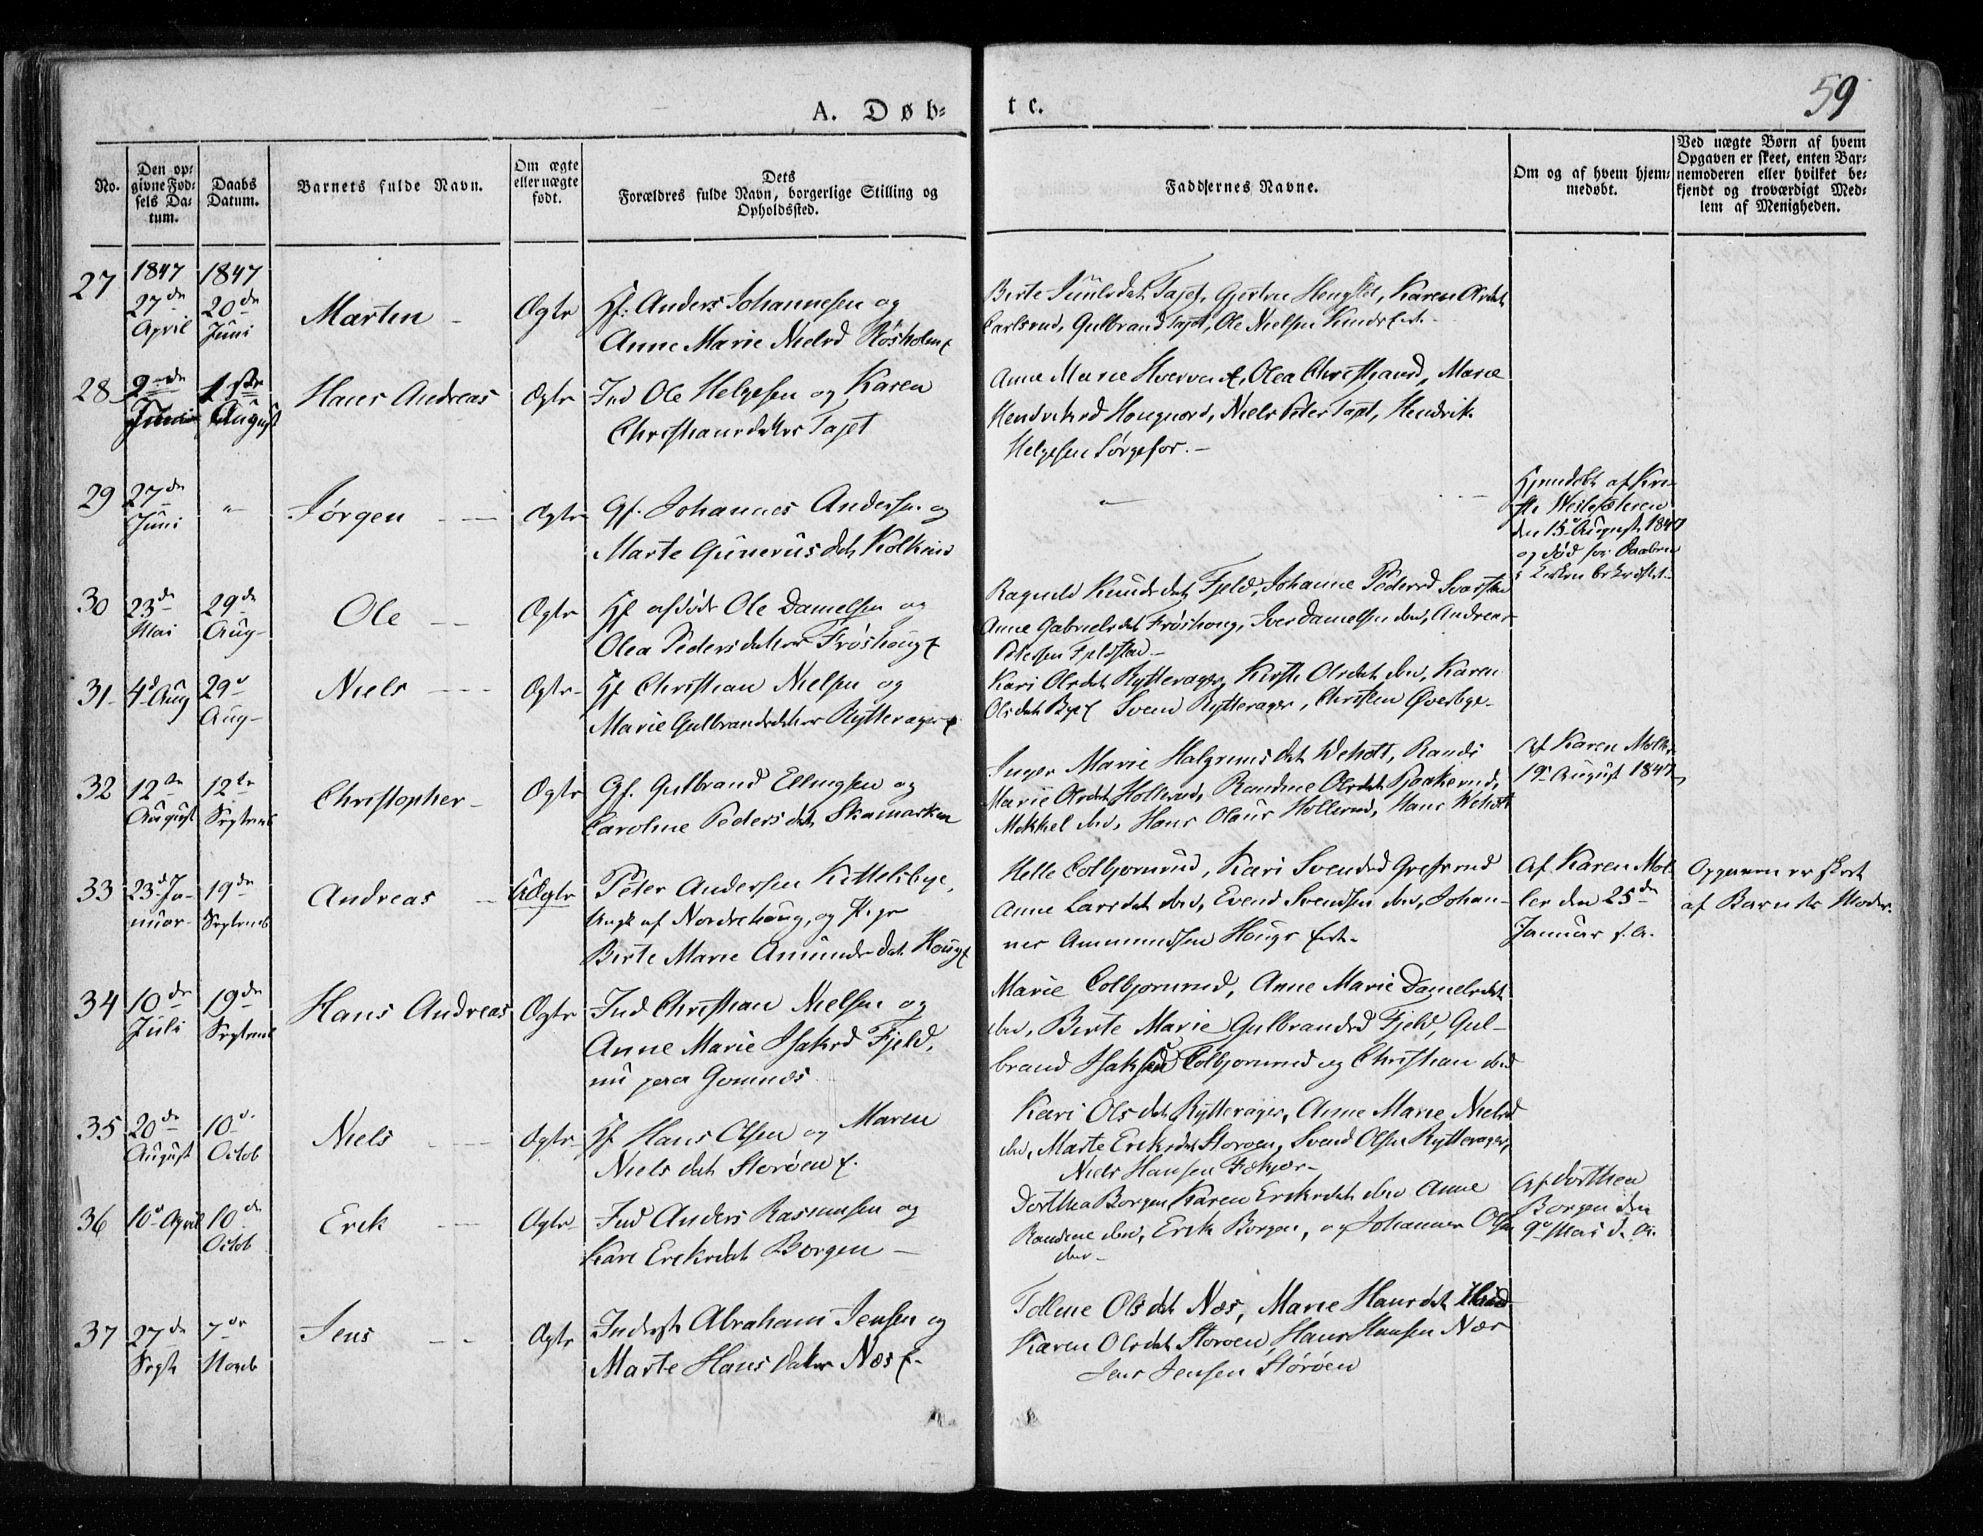 59
A. Døb= te.
No.
Den op=
givne Fød=
sels Da=
tum.
Daabs
Datum.
Barnets fulde Navn.
Om ægte
eller uægte
født.
Dets
Forældres fulde Navn, borgerlige Stilling og
Opholdssted.
Faddernes Navne.
Om og af hvem hjem=
medøbt.
Ved uægte Børn af hvem
Opgaven er skeet, enten Bar=
nemoderen eller hvilket be=
kjendt og troværdigt Med=
lem af Menigheden.
27
1847
27de
April
1847
20de
Juni
Marten
Ægte
Gf. Anders Johannesen og
Anne Marie Nielsd
Gulbrand Tajet, Ole Nielsen
28
2den
Juni
1ste
August
Hans Andreas
Ægte
Ind Ole Helgesen og Karen
Christiansdatter Tajet
Anne Marie Olea Christiansd, Marie
Niels Peter Tajet, Hendrik
Helgesen
29
27de
Juni
"
Jørgen
Ægte
Gf. Johannes Andersen og
Marte Gunerusdat
"
Hjemdøbt af
den 15 August 1847
og død før Daaben
30
23de
Mai
29de
Aug
Ole
Ægte
Gf afdøde Ole Danielsen og
Olea Pedersdatter Frøshoug
Ragnild Knudsdat Fjeld, Johanne Pedersd
Anne Gabrielsdat Frøshoug, Iver Danielsen ibd, Andreas
Petersen Fjeldstad
31
4d Aug
29d
Aug
Niels
Ægte
Gf Christian Nielsen og
Marie Gulbrandsdatter Rytterager
Kari Olsdat Rytterager, Kirsti Olsdat ibd, Karen
Olsdat Svend Rytterager, Christen Øverbye
32
12te
August
12te
Septemb
Christopher
Ægte
Gf. Gulbrand Ellingsen og
Caroline Pedersdat Skamarken
Inger Marie Randi
Marie Olsdat Hollerud, Randine Olsdat
Mekkel ibd, Hans Olaus Hollerud, Hans
Af Karen
19 August 1847
33
23d Ja-
nuar
19de
Septemb
Andreas
UÆgte
Peter Andersen Kittelsbye,
Ungk af Norderhoug, og Pige
Birte Marie Amundsdat Houg
Helle Colbjornrud, Kari Svendsd Grefsrud
Anne Larsdat ibd, Evend Svendsen ibd, Johan-
nes Ammundsen Hougs
Af Karen Mol-
ler den 25de
Januar s. A.
Opgaven er skeet
af Barnets Moder.
34
10de
Juli
19de
Septemb
Hans Andreas
Ægte
Ind Christian Nielsen og
Anne Marie Isaksd Fjeld,
nu paa Gomnæs
Marie Colbjornrud, Anne Marie Danielsdat
ibd, Birte Marie Gulbrandsd Fjeld, Gul-
brand Isaksen Colbjornrud og Christian ibd
35
20de
August
10d
Octob
Niels
Ægte
Gf Hans Olsen og Maren
Nielsdat Storøen
Kari Olsdat Rytterager, Anne Marie Nielsd
ibd, Marte Eriksdat Storøen, Svend Olsen Rytterager,
Niels Hansen
36
10d April
10de
Octob
Erik
Ægte
Ind Anders Rasmusen og
Kari Eriksdat Borgen
Dorthea Borgen, Karen Eriksdat ibd Anne
Randine ibd, Erik Borgen, og Johannes Olsen
ibd
Af Dorthea
Borgen den
9d Mai d. A.
37
27de
Sept
7de
Novb
Jens
Ægte
Inderst Abraham Jensen og
Marte Hansdatter Næs
Olsdat Næs, Marie Hansdat
Karen Olsdat Storøen, Hans Hansen Næs
Jens Jensen Storøen